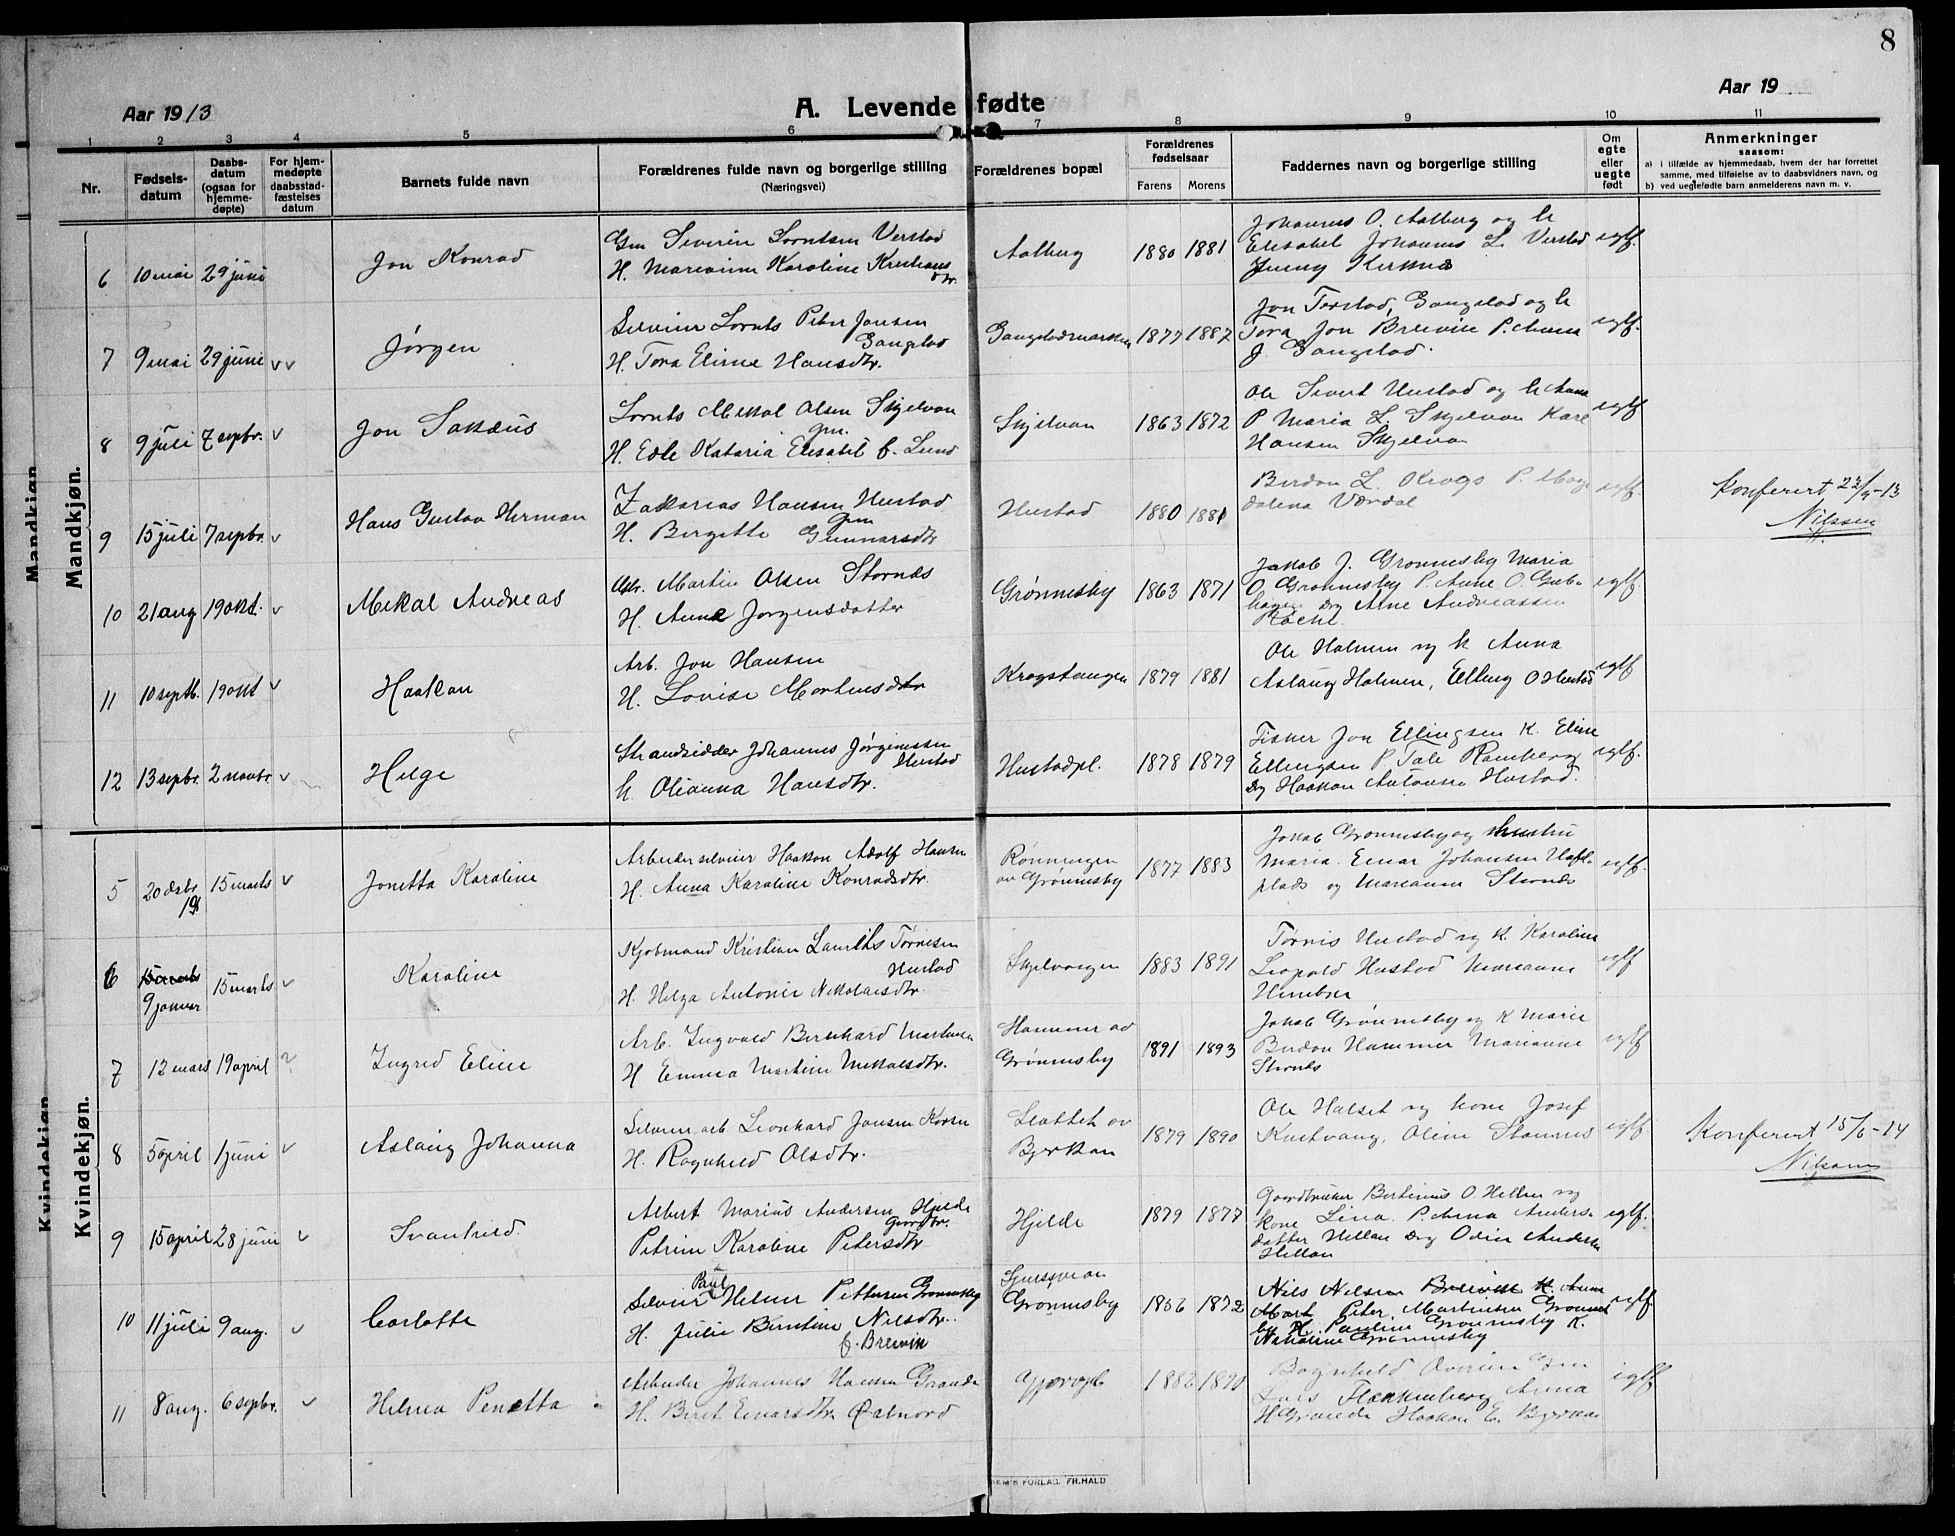 8
Aar 1913
A. Levende fødte
Aar 19
1 2 3 4 5 6 7 8 9 10 11
Nr.
Fødsels-
datum
Daabs-
datum
(ogsaa for
hjemme-
døpte)
For hjem-
medøpte
daabsstad-
fæstelses
datum
Barnets fulde navn
Forældrenes fulde navn og borgerlige stilling
(Næringsvei)
Forældrenes bopæl
Forældrenes
fødselsaar
Farens Morens
Faddernes navn og borgerlige stilling
Om
egte
eller
uegte
født
Anmerkninger
saasom:
a) i tilfælde av hjemmedaab, hvem der har forrettet
samme, med tilføielse av to daabsvidners navn, og
b) ved uegtefødte barn anmelderens navn m. v.
Mandkjøn.
6 10 mai 29 juni Jon Konrad
Gm Severin Lorntsen Verstad
H. Marianne Karoline Kristians
dtr.
Aalberg 1880 1881
Johannes O. Aalberg og h
Elisabet Johannes L. Verstad
Jenny Kirknes
egtf.
7 9 mai 29 juni vv Jørgen
Selveier Lornts Peter Jonsen
Gangstad
H. Tora Eline Hansdtr.
Gangstadmarken 1877 1887
Jon Terstad, Gangstad og h
Tora Jon Breivik P. Anna
J. Gangstad.
egtf.
8 9 juli 7 sepbr. v Jon Sakæus
Lornts Mekal Olsen Skjelvan
gm.
H. Edle Kataria Elisabet f. Lund
Skjelvan 1863 1872
Ole Sivert Hustad og h Anne
P Maria L. Skjelvan Karl
Hansen Skjelvan
egtf
9 15 juli 7 sepbr. v Hans Gustav Herman
Zakarias Hansen Hustad
Gm
H. Bergitte Gunnarsdtr
Hustad 1880 1881
Berdon L. Krogs P. Mag
dalena Værdal
egtf.
Konferert 23/9-13
Nilssen
10 21 aug 19 okt. v Mekal Andreas
Martin Olsen Stornes
H. Anne Jørgensdatter
Grønnesby 1863 1871
Jakob J. Grønnesby Maria
O. Grønnesby P. Anne O. Grub-
hagen Dg Arne Andreassen
egtf.
11 10 septb. 19 okt v Haakon
Arb. Jon Hansen
H. Lovise Mortensdtr
Krogstangen 1879 1881
Ole Holmen og k Anna
Aslaug Holmen, Elling O Hustad
egtf
12 13 sepbr. 2 novbr. v Helge
Strandsidder Johannes Jørgenssen
Hustad
h. Olianna Hansdtr.
Hustadpl. 1878 1879
Fisker Jon Ellingsen K. Eline
Ellingsen P Tale Ramberg
Dg Haakon Antonsen Hustad.
egtf.
Kvindekjøn.
5 20 dsbr 15 marts v Jonetta Karoline
Arbeider selveier Haakon Adolf Hansen
H. Anna Karoline Konradsdtr.
Rønningen
av Grønnesby 1877 1883
Jakob Grønnesby og hustru
Maria. Einar Johansen
plads og Marianne Stornes
egtf.
6 15 marts
9 januar 15 marts v Karoline
Kjøbmand Kristian Laurits Tørnisen
Hustad
H. Helga Antonie Nikolaisdtr.
Skjelvagen 1883 1891
Tørnis Hustad og K. Karoline
Leopold Hustad Marianne
egtf
7 12 mars 19 april Ingrid Eline
Arb. Ingvald Bernhard Martinsen
H Emma Martine Mekalsdtr.
Hammer av
Grønnesby 1891 1893
Jakob Grønnesby og K Marie
Berdon Hammer Marianne
Stornes
egtf
8 5 april 1 juni v Aslaug Johanna
Selveier arb Leonhard Jonsen
H. Ragnhild Olsdtr.
Slottet av
Bjerkan 1879 1890
Ole Halset og kone Josef
Kustvang, Oline Stamnes
egtf
Konferert 15/6-14
Nilssen
9 15 april 28 juni v Svanhild.
Albert Marius Andersen Hjelde
Gaardbr.
Petrine Karoline Petersdtr
Hjelde 1879 1877
Gaardbruker Bertinius O. Hellan og
kone Lina. P. Anna Anders-
datter Hellan Dg Odin Anders
Hellan
egtf.
10 11 juli 9 aug. v Carlotte
Paul
Selveier Helmer Pettersen Grønnesby
H. Julie Berntine Nilsdtr.
f. Breivik
Grønnesby 1866 1872
Nils Nilsen Breivik K. Anne
Mart Peter Martinsen Grønnes
by H. Pauline Grønnesby K.
Nekoline Grønnesby
egtf.
11 8 aug. 6 sepbr. v Helma Penetta
Arbeider Johannes Hansen Grande
H. Beret Einarsdtr
1882 1890
Ragnhild
Lars Flakkenberg Anna
H Grande Haakon E. Bjerkan
egtf
FORLAG. FR. HALD